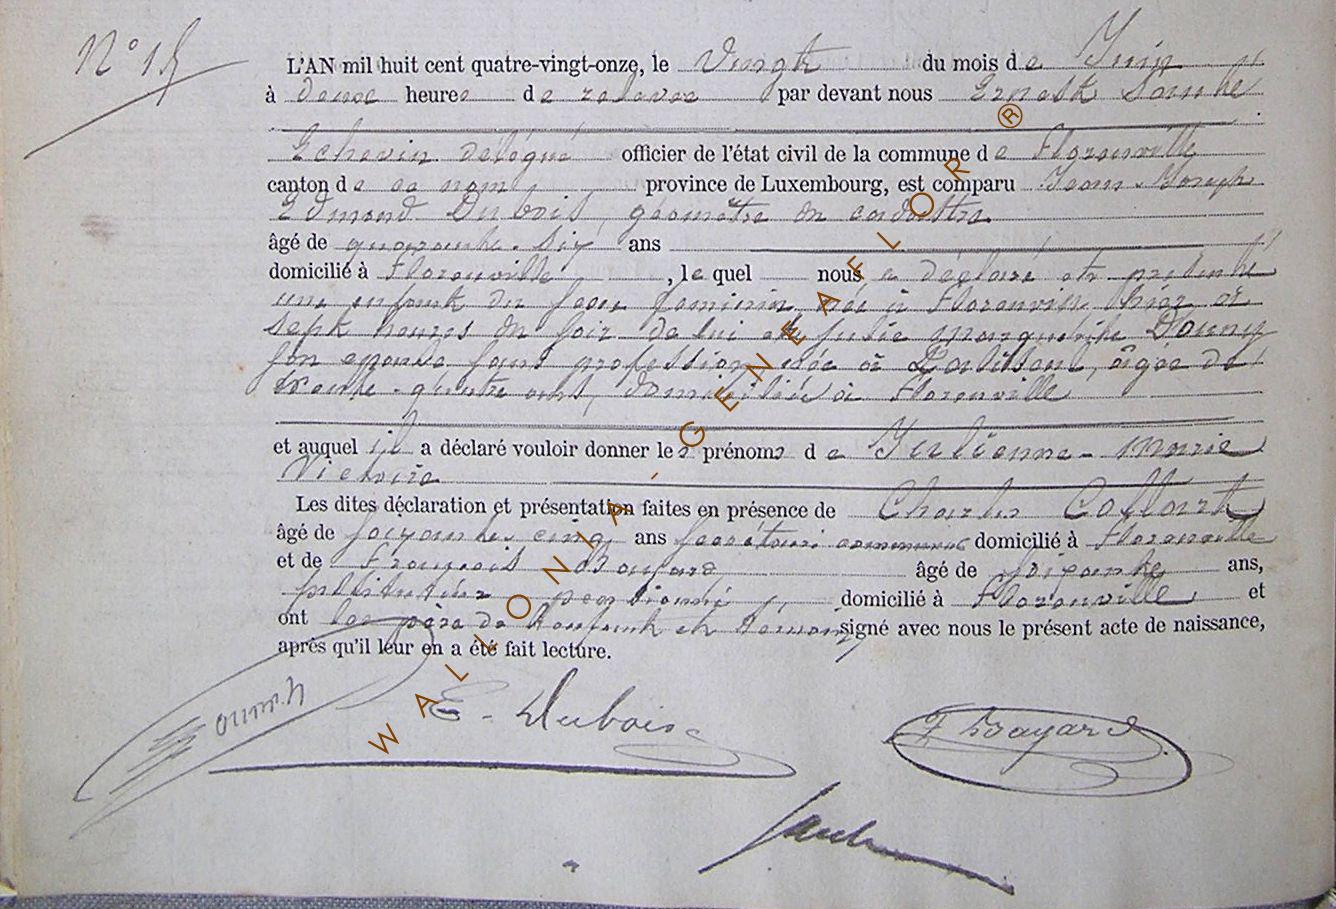 N° 15
L'AN mil huit cent quatre-vingt-onze, le Vingt du mois de Juin
à deux heures de relevée par devant nous Ernest
Echevin délégué officier de l'état civil de la commune de Florenville
canton de ce nom province de Luxembourg, est comparu Jean-Joseph
Edmond Dubois, géomètre du cadastre
âgé de quarante-six ans
domicilié à Florenville, lequel nous a déclaré et présenté
une enfant du sexe féminin née à Florenville hier à
sept heures du soir de lui et Julie Marguerite
son épouse sans profession née à âgée de
trente-quatre ans, domiciliée à Florenville
et auquel il a déclaré vouloir donner les prénoms de Julienne-Marie
Victoire
Les dites déclaration et présentation faites en présence de Charles Collart
âgé de soixante cinq ans secrétaire communal domicilié à Florenville
et de François Bayard âgé de soixante ans,
instituteur pensionné, domicilié à Florenville et
ont le père de l'enfant et témoins signé avec nous le présent acte de naissance,
après qu'il leur en a été fait lecture.
E. Dubois
F Bayard
WALLONIA - GENEAFLOR ®